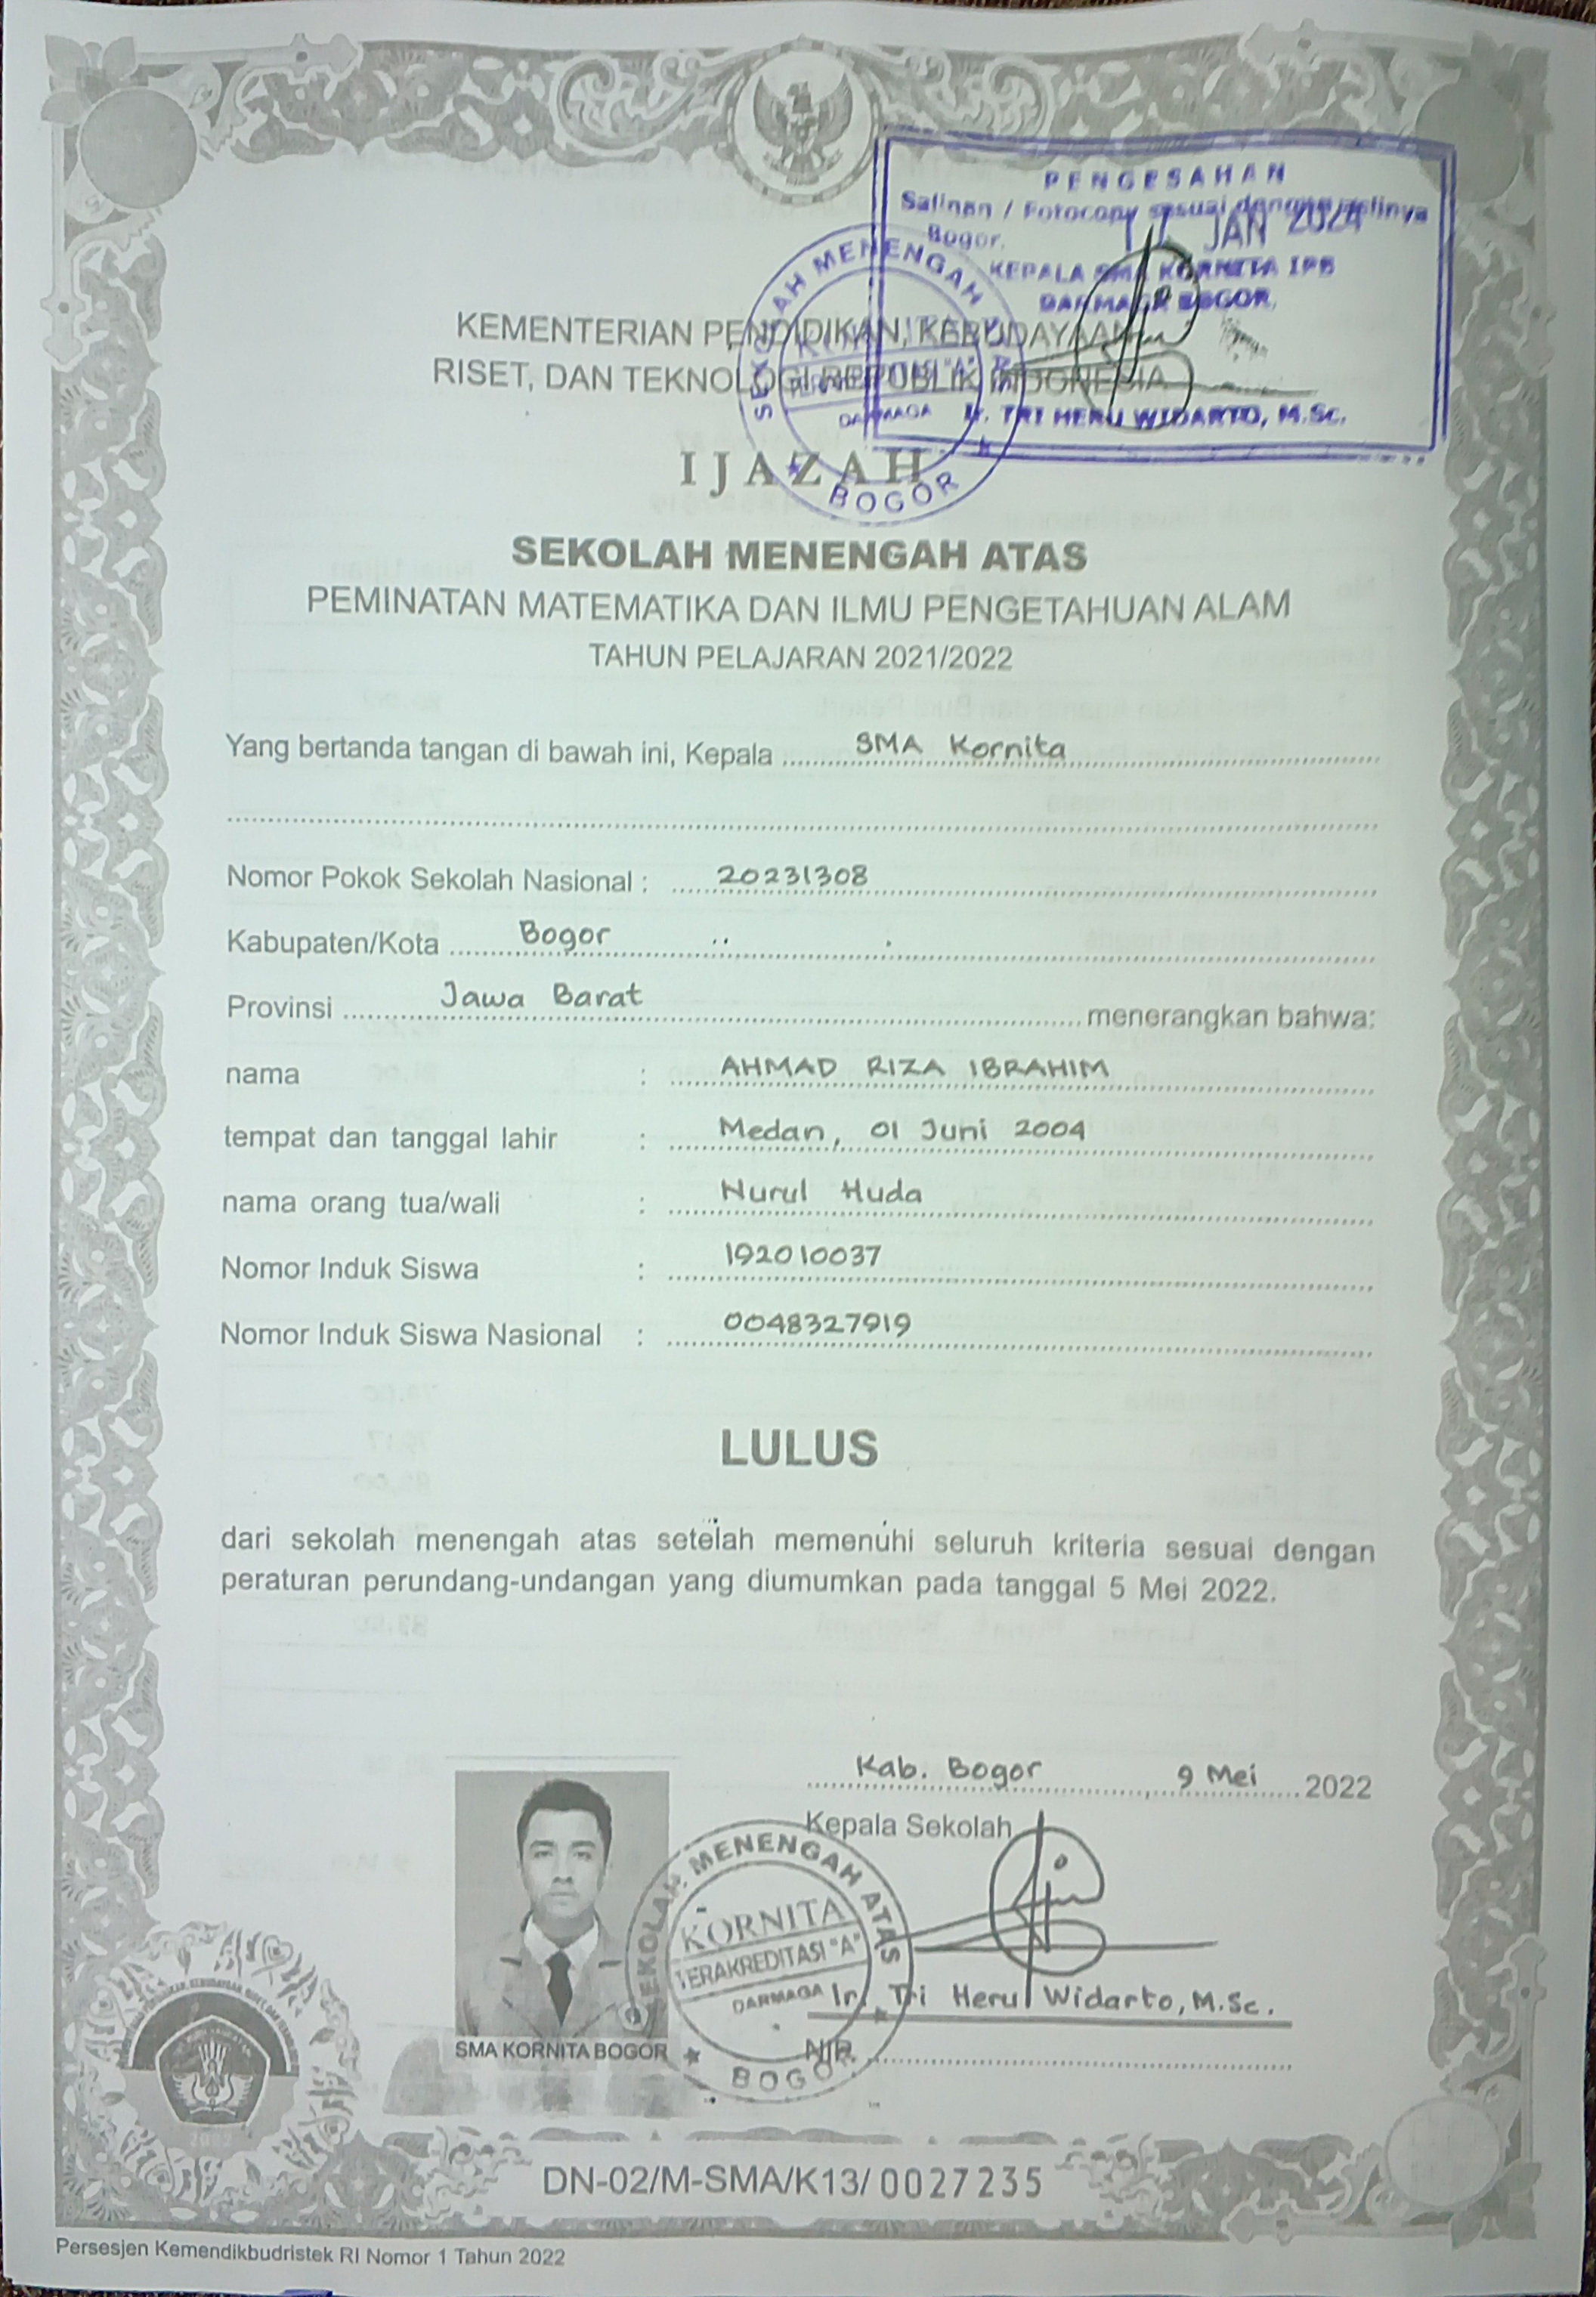 PENGESAHAN
Salinan / Fotocopy sesuai dengan aslinya
Bogor, JAN 2024
KEPALA SMA KORNITA IPB
DARMAGA BOGOR,
Ir. TRI HERU WIDARTO, M.Sc.
SEKOLAH MENENGAH
TERAKREDITASI "A"
DARMAGA
BOGOR
KEMENTERIAN PENDIDIKAN, KEBUDAYAAN,
RISET, DAN TEKNOLOGI REPUBLIK INDONESIA
IJAZAH
SEKOLAH MENENGAH ATAS
PEMINATAN MATEMATIKA DAN ILMU PENGETAHUAN ALAM
TAHUN PELAJARAN 2021/2022
Yang bertanda tangan di bawah ini, Kepala SMA Kornita
Nomor Pokok Sekolah Nasional : 20231308
Kabupaten/Kota Bogor
Provinsi Jawa Barat menerangkan bahwa:
nama : AHMAD RIZA IBRAHIM
tempat dan tanggal lahir : Medan, 01 Juni 2004
nama orang tua/wali : Nurul Huda
Nomor Induk Siswa : 192010037
Nomor Induk Siswa Nasional : 0048327919
LULUS
dari sekolah menengah atas setelah memenuhi seluruh kriteria sesuai dengan
peraturan perundang-undangan yang diumumkan pada tanggal 5 Mei 2022.
Kab. Bogor, 9 Mei 2022
Kepala Sekolah
SEKOLAH MENENGAH ATAS
KORNITA
TERAKREDITASI "A"
DARMAGA
BOGOR
Ir. Tri Heru Widarto, M.Sc.
NIP.
SMA KORNITA BOGOR
DN-02/M-SMA/K13/ 0027235
Persesjen Kemendikbudristek RI Nomor 1 Tahun 2022